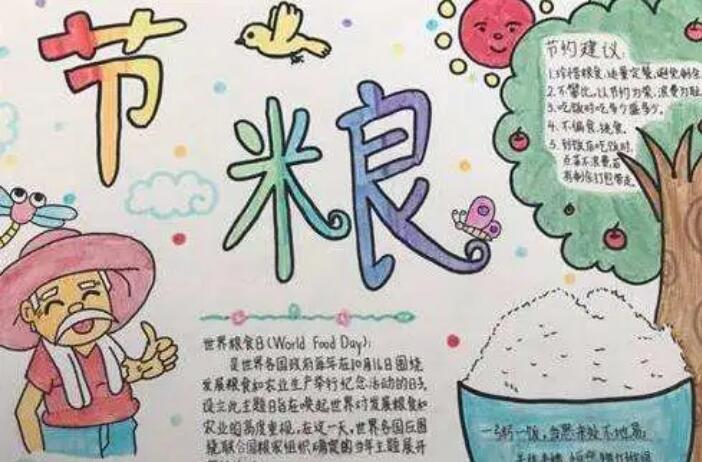 节粮
节约建议:
1.珍惜粮食,适量定餐,避免剩
2.不攀比,以节约为荣,浪费为耻
3.吃饭时吃多少盛多少。
4.不偏食,挑食。
5.到饭店吃饭时,
点菜不浪费,若
有剩余打包带走。
世界粮食日(World Food Day):
是世界各国政府每年在10月16日围绕
发展粮食和农业生产举行纪念活动的日子,
设立此主题日旨在唤起世界对发展粮食和
农业的高度重视,在这一天,世界各国应围
绕联合国粮农组织确定的当年主题展开
一粥一饭,当思来处不地易,